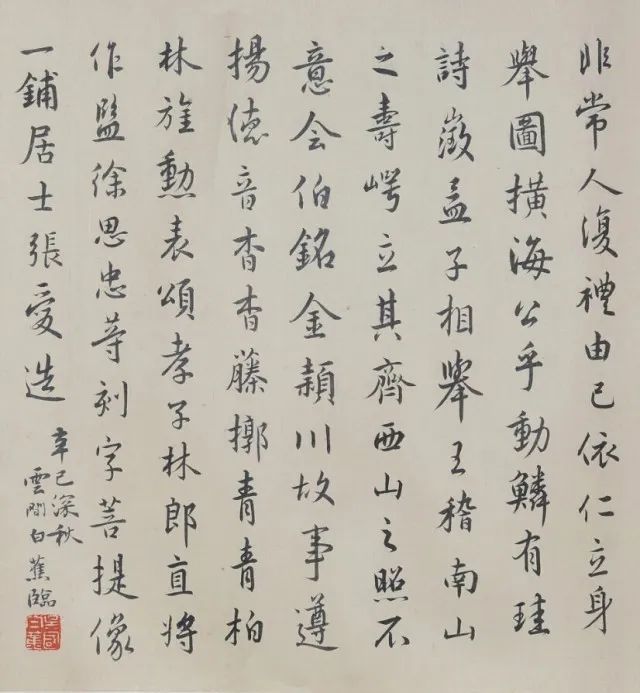 非常人復禮由己依仁立身
舉圖擴海公乎動鱗有珪
詩嶶孟子相舉王稽南山
之壽崿立其齊西山之照不
意会伯銘金穎川故事遵
揚德音杳杳藤擲青青柏
林旌勲表頌孝子林郎直將
作監徐思忠等刻字菩提像
一鋪居士張愛造
辛巳深秋
雲間白蕉臨